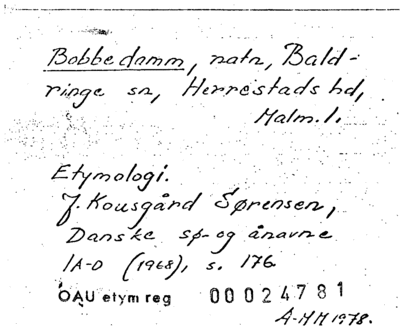 Bobbedamm, natn, Bald-
ringe sn, Herrestads hd,
Malm. l.
Etymologi.
J. Kousgård Sørensen,
Danske sø- og ånavne
1A-D (1968), s. 176.
OAU etym reg 00024781
A-MH 1978.